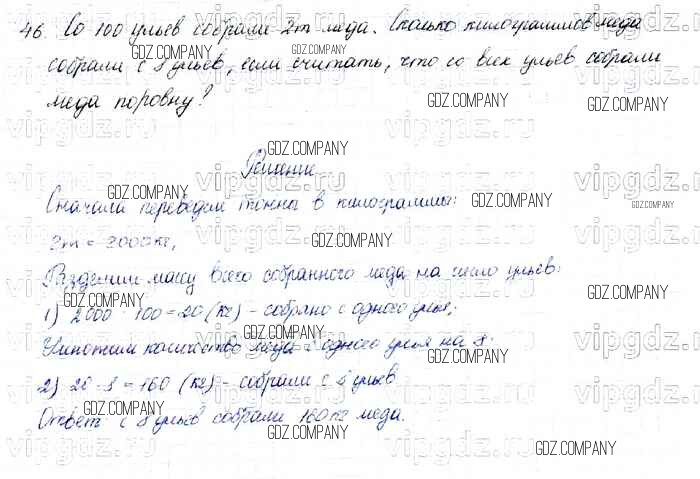 46. Со 100 ульев собрали 2т меда. Сколько килограммов меда
собрали с 8 ульев, если считать, что со всех ульев собрали
меда поровну?
Решение
Сначала переведем тонны в килограммы:
2т = 2000кг,
Разделим массу всего собранного меда на число ульев:
1) 2000 : 100 = 20 (кг) - собрано с одного улья;
Умножим количество меда с одного улья на 8:
2) 20 · 8 = 160 (кг) - собрали с 8 ульев
Ответ с 8 ульев собрали 160кг меда.
GDZ.COMPANY
vipgdz.ru